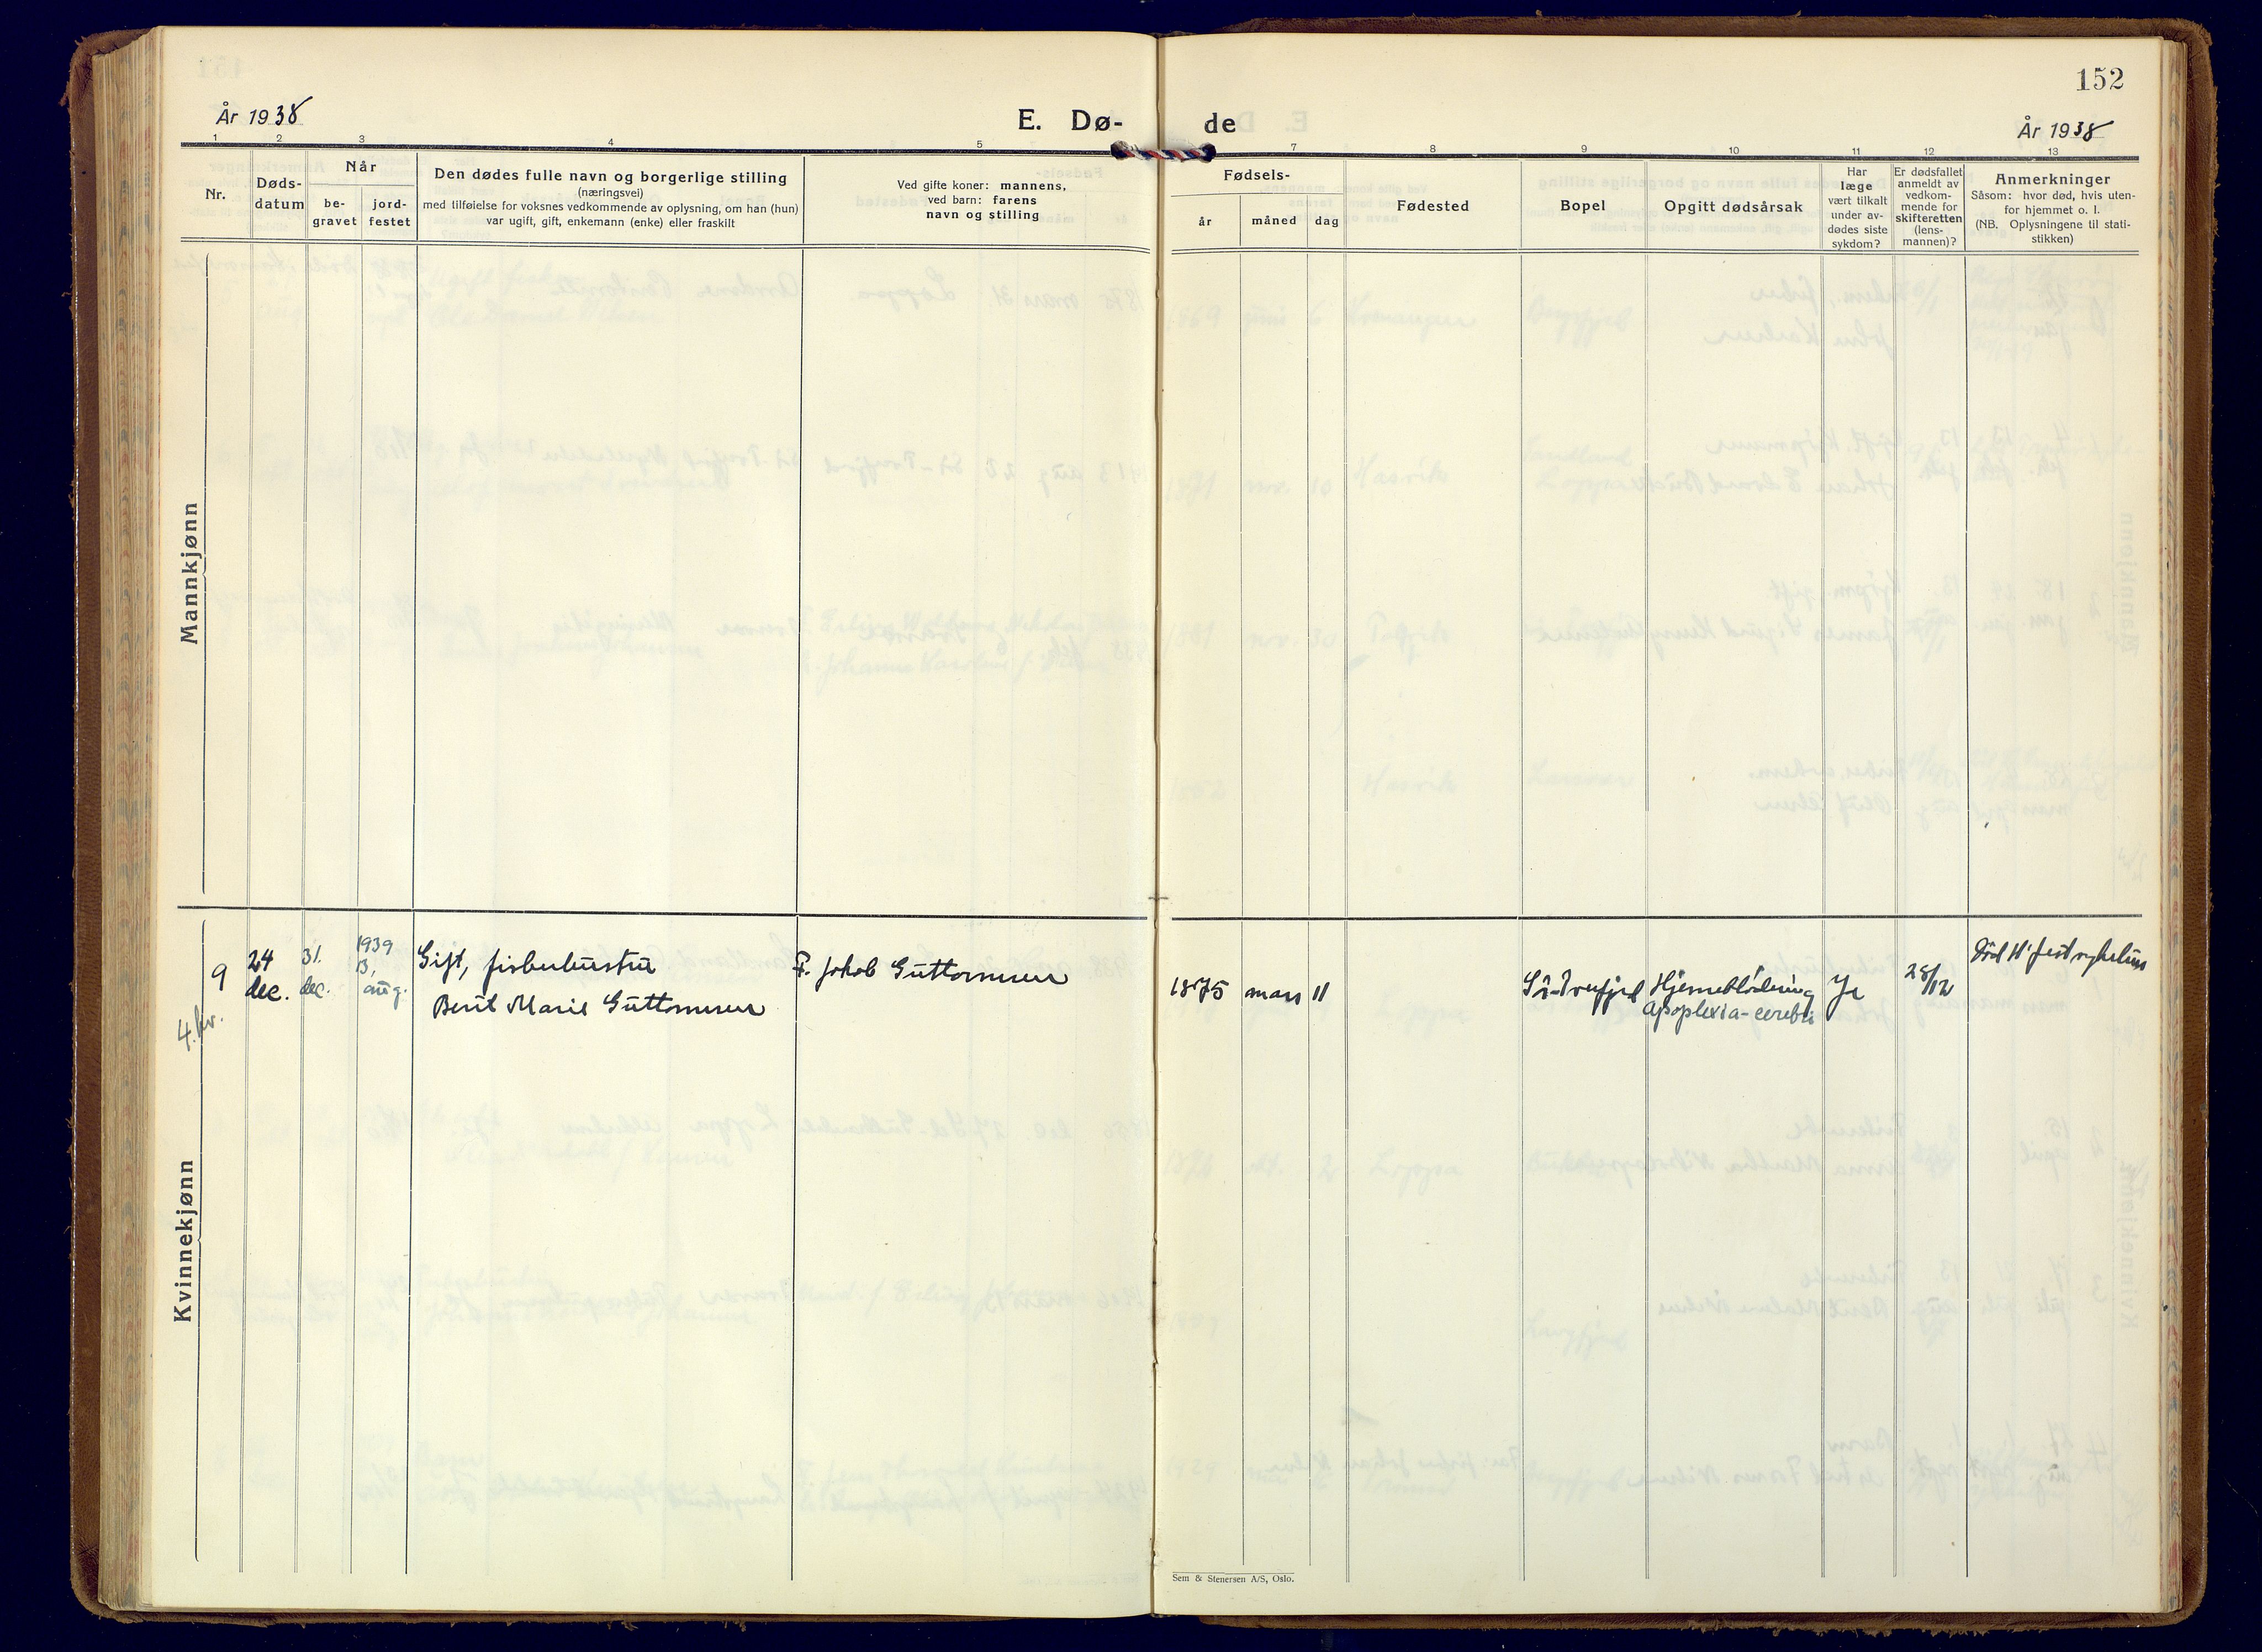 152
År 1938
E. Dø-
de
År 1938
1 2 3 4 5
7 8 9 10 11 12 13
Nr.
Døds-
datum
Når
be-
gravet
jord-
festet
Den dødes fulle navn og borgerlige stilling
(næringsvei)
med tilføielse for voksnes vedkommende av oplysning, om han (hun)
var ugift, gift, enkemann (enke) eller fraskilt
Ved gifte koner: mannens,
ved barn: farens
navn og stilling
Fødsels-
år
måned
dag
Fødested
Bopel
Opgitt dødsårsak
Har
læge
vært tilkalt
under av-
dødes siste
sykdom?
Er dødsfallet
anmeldt av
vedkom-
mende for
skifteretten
(lens-
mannen)?
Anmerkninger
Såsom: hvor død, hvis uten-
for hjemmet o. l.
(NB. Oplysningene til stati-
stikken)
Mannkjønn
Kvinnekjønn
9
4. kv.
24
dec.
31.
dec.
1939
13,
aug.
Gift, fiskerhustru
Berit Marie Guttormsen
F. Jakob Guttormsen
1875
mars
11
Hjerneblödning
Apoplexia-cerebri
Ja
28/12
Död H'fest sykehus
Sem & Stenersen A/S, Oslo.